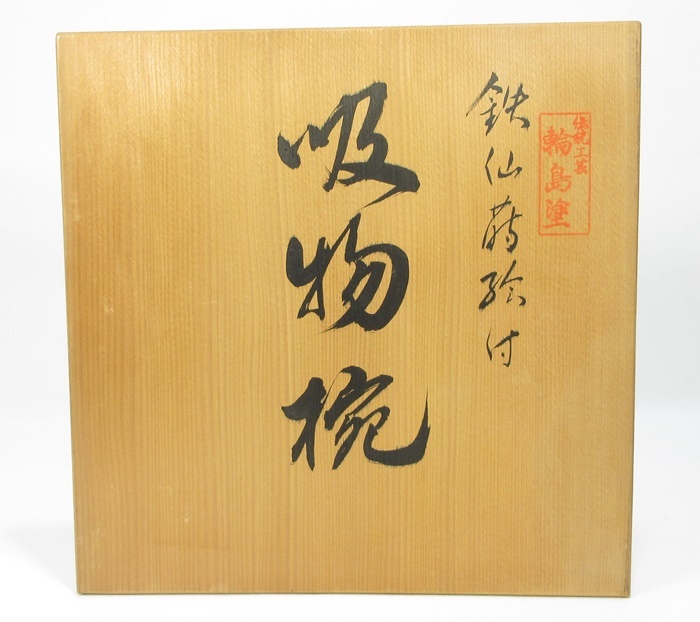 伝統工芸
輪島塗
鉄仙蒔絵付
吸物椀